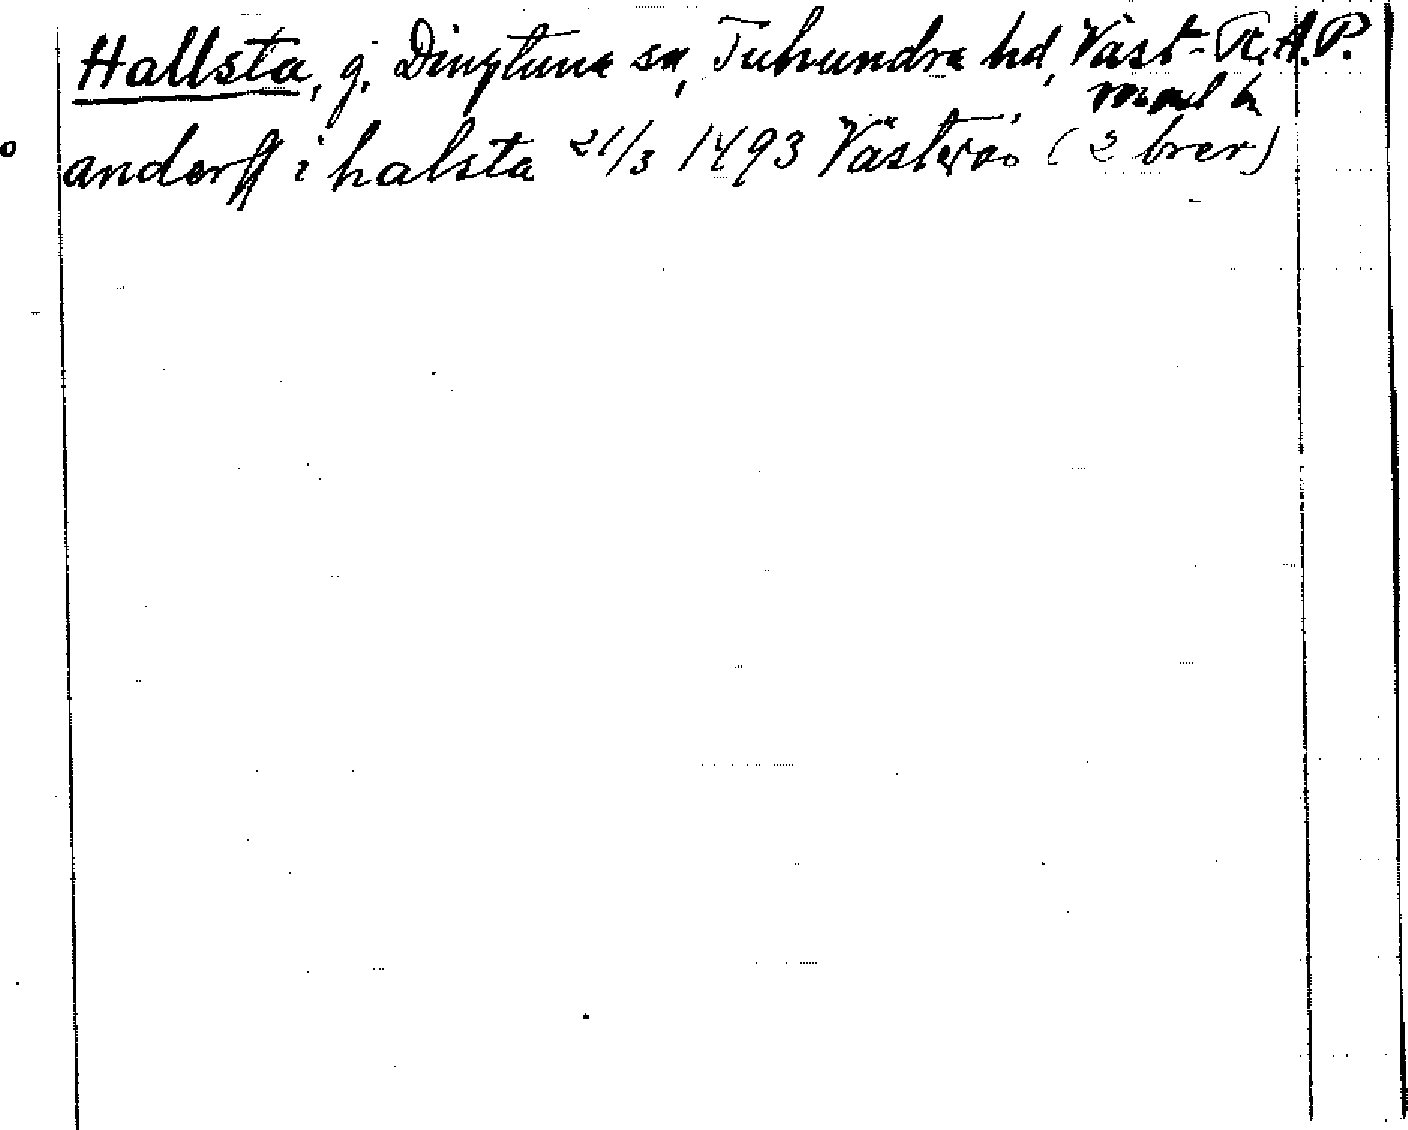 Hallsta, g. Dingtuna sn, Tuhundra hd, Väst- R.A.P.
manl.
anderss i halsta 21/3 1493 Västerås (2 brev)